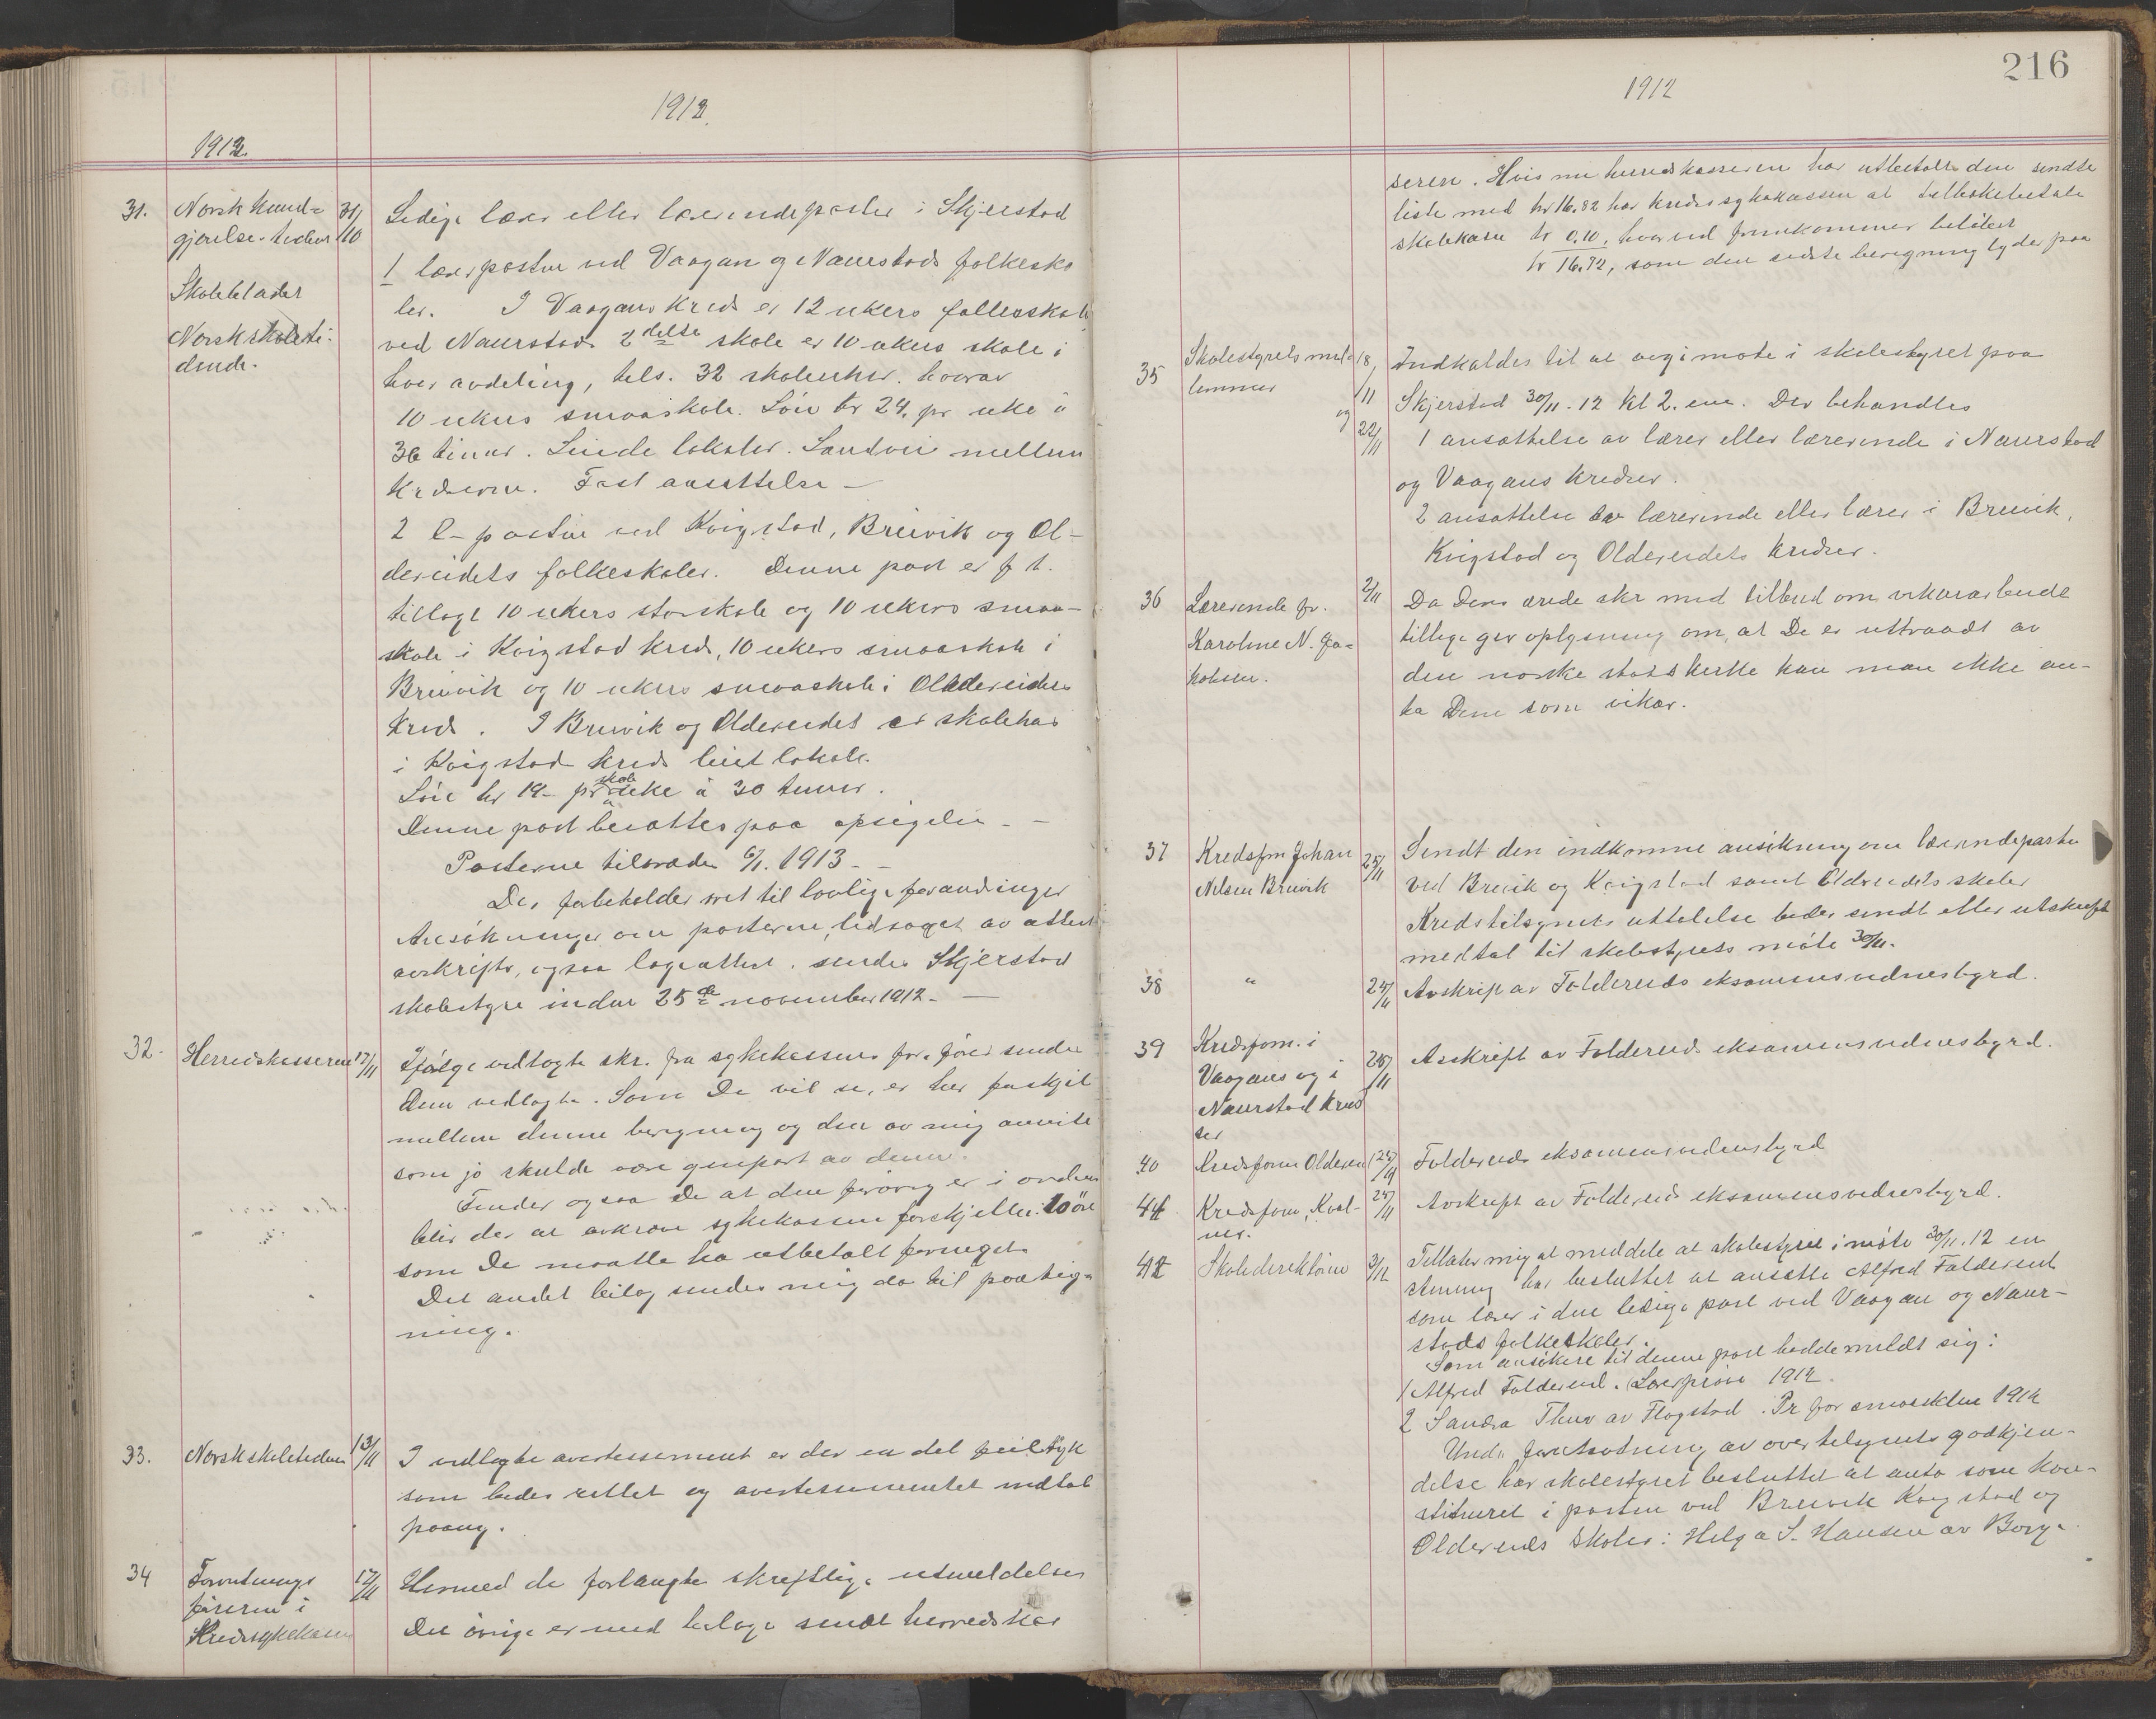 1912.
1912.
31.
Norsk kund-
gjørelse-tidene
Skolebladet
Norsk skoleti-
dende.
31/10
Ledige lærer eller lærerindeposter i Skjerstad
1 lærerposten ved Vaagan og Naurstads folkesko
ler. I Vaagans kreds er 12 ukers fællesskole
ved Naurstad 2 delte skole er 10 ukers skole i
hver avdeling, tils. 32 skoleuker. hvorav
10 ukers smaaskole. Løn kr 24. pr uke à
36 timer. Leiede lokaler. Landvei mellem
kredserne. Fast ansættelse –
2 l-posten ved Kvigstad, Breivik og Ol-
dereidets folkeskoler. Denne post er f t.
tillagt 10 ukers storskole og 10 ukers smaa-
skole i Kvigstad kreds, 10 ukers smaaskole i
Breivik og 10 ukers smaaskole i Oldereidets
kreds. I Breivik og Oldereidet er skolehus
i Kvigstad kreds leiet lokale.
Løn kr 19- pr skoleuke à 30 timer.
Denne post besættes paa opsigelse - -
Posterne tiltrædes 6/1. 1913 - -
Der forbeholdes ret til lovlige forandringer
Ansøkninger om posterne, ledsaget av attest
avskrifter, ogsaa lægeattest, sendes Skjerstad
skolestyre inden 25de november 1912. —
32.
Herredskassereren
17/11
Ifølge vedlagte skr. fra sykekassens for.fører sendes
Dem vedlagte. Som De vil se, er her forskjel
mellem denne beregning og den av mig anviste
som jo skulde være genpart av denne.
Finder ogsaa De at den forøvrig er i orden
blir der at avkræve sykekassen forskjellen 10 øre
som De maatte ha utbetalt formeget.
Det andet bilag sendes mig da til paateg-
ning.
33.
Norsk skoletidende
13/11
I vedlagte avertissement er der en del feiltryk
som bedes rettet og avertissementet indtat
paany.
34
Forretnings
føreren i
Kredssykekassen
17/11
Hermed de forlangte skriftlige utmeldelser
Det øvrige er med bilage sendt herredskas
216
1912
sereren. Hvis nu herredskassereren har utbetalt den sendte
liste med kr 16.82 har kredssykekassen at tilbakebetale
skolekassen kr 0.10, hvorved fremkommer beløbet
kr 16.72, som den sidste beregning lyder paa
35
Skolestyrets med-
lemmer
18/11
og
22/11
Indkaldes til at avgi møte i skolestyret paa
Skjerstad 30/11. 12 kl 2. em. Der behandles
1 ansættelse av lærer eller lærerinde i Naurstad
og Vaagans kredser.
2 ansættelse av lærerinde eller lærer i Breivik,
Kvigstad og Oldereidets kredser.
36
Lærerinde fr.
Karoline N. Ja-
kobsen.
2/11
Da Deres ærede skr med tilbud om vikararbeide
tillige gir oplysning om, at De er uttraadt av
den norske statskirke kan man ikke an-
ta Dem som vikar.
37
Kredsfm Johan
Nilsen Breivik
25/11
Sendt den indkomne ansøkning om lærerindeposten
ved Breivik og Kvigstad samt Oldereidets skoler
Kredstilsynets uttalelse bedes sendt eller utskrift
medtat til skolestyrets møte 30/11.
38
"
25/11
Avskrip av Foldereids eksamensvidnesbyrd.
39
Kredsfom. i
Vaagans og i
Naurstad kred
ser
25/11
Avskrift av Foldereids eksamensvidnesbyrd.
40
Kredsform Oldereid
25/11
Foldereids eksamensvidnesbyrd
41
Kredsfom, Kval-
nes.
25/11
Avskrift av Foldereids eksamensvidnesbyrd.
42
Skoledirektøren
3/12
Tillater mig at meddele at skolestyret i møte 30/11. 12 en
stemmig har besluttet at ansætte Alfred Foldereid
som lærer i den ledige post ved Vaagan og Naur-
stads folkeskoler.
Som ansøkere til denne post hadde meldt sig:
1 Alfred Foldereid. Lærerprøve 1912.
2 Sandra Thuv av Flogstad. Pr for smaasklen 1912
Under forutsætning av overtilsynets godkjen-
delse har skolestyret besluttet at anta som kon-
stitueret i posten ved Breivik Kvigstad og
Oldereids skoler: Helga S. Hansen av Borge.